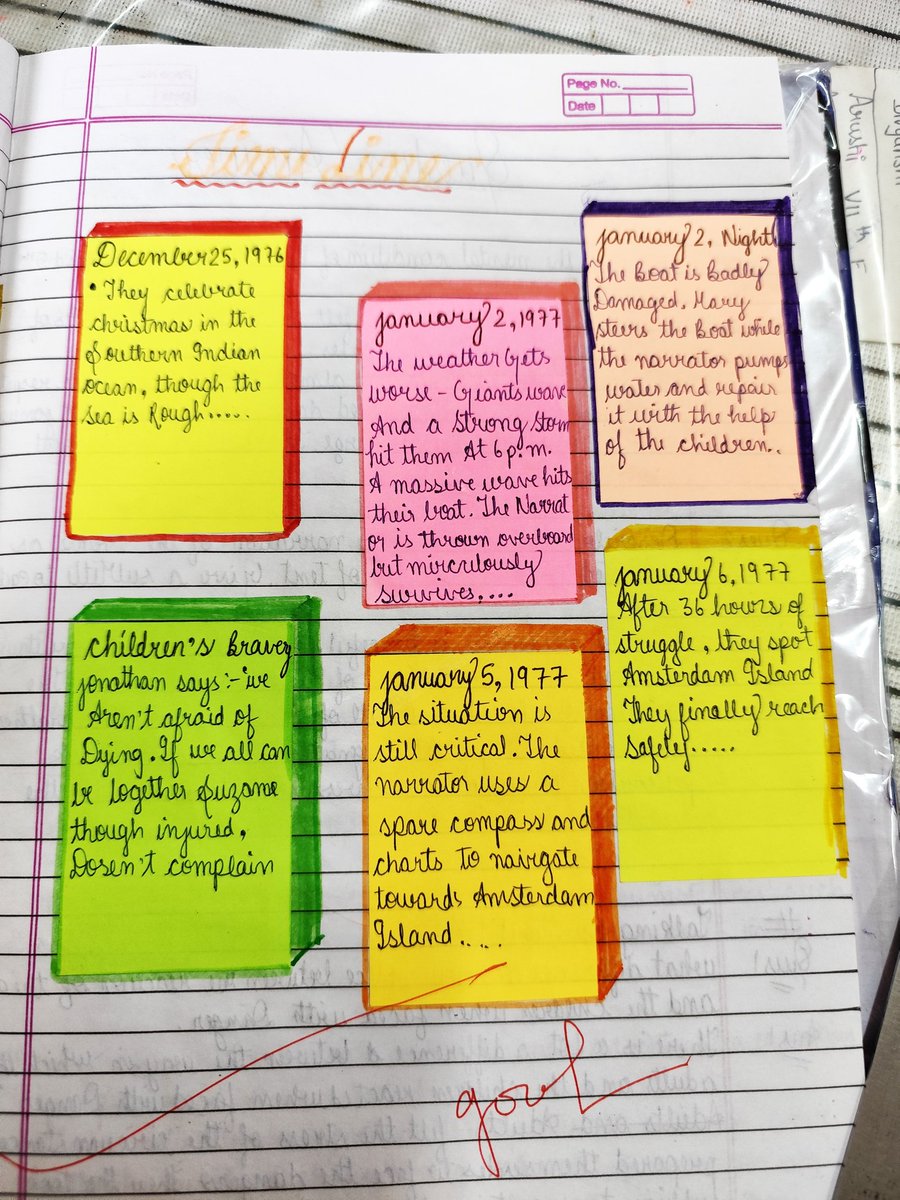 Page No.
Date
Time Line
December 25, 1976
• They celebrate
christmas in the
Southern Indian
ocean, though the
sea is Rough.....
january 2, 1977
The weather Gets
worse - Giants wave
And a Strong Storm
hit them At 6 p.m.
A massive wave hits
their boat. The Narrat
or is thrown overboard
but mirculously
survives....
january 2, Night
The Boat is Badly
Damaged. Mary
steers the Boat while
the narrator pumps
water and repair
it with the help
of the children..
children's Bravery
jonathan says :- "we
Aren't afraid of
Dying. If we all can
be together Suzame
though injured,
Dosen't complain
january 5, 1977
The situation is
still critical. The
narrator uses a
spare compass and
charts to nairgate
towards Amsterdam
Island....
january 6, 1977
After 36 hours of
struggle, they spot
Amsterdam Island
They finally reach
safely.....
Arushi VII th F